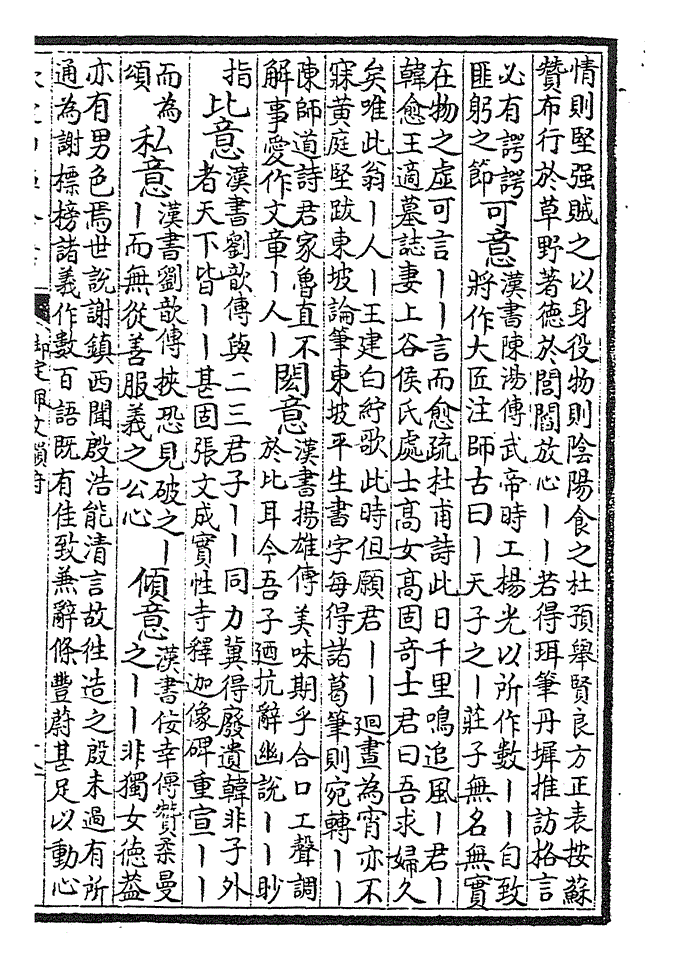 情則堅强賊之以身役物則陰陽食之杜預舉賢良方正表按蘇
贊布行於草野著德於閭閻放心丨丨若得珥筆丹墀推訪格言
必有諤諤
匪躬之節
可意
漢書陳湯傳武帝時工楊光以所作數丨丨自致
將作大匠注師古曰丨天子之丨莊子無名無實
在物之虚可言丨丨言而愈疏杜甫詩此日千里鳴追風丨君丨
韓愈王適墓誌妻上谷侯氏處士高女高固奇士君曰吾求婦久
矣唯此翁丨人丨王建白紵歌此時但願君丨丨廻晝為宵亦不
寐黄庭堅跋東坡論筆東坡平生書字每得諸葛筆則宛轉丨丨
陳師道詩君家魯直不
解事愛作文章丨人丨
閎意
漢書揚雄傳美味期乎合口工聲調
於比耳今吾子廼抗辭幽說丨丨眇
指
比意
漢書劉歆傳與二三君子丨丨同力冀得廢遺韓非子外
者天下皆丨丨甚固張文成實性寺釋迦像碑重宣丨丨
而為
頌
私意
漢書劉歆傳挾恐見破之丨
丨而無從善服義之公心
傾意
漢書佞幸傳贊柔曼
之丨丨非獨女德葢
亦有男色焉世說謝鎮西聞殷浩能清言故徃造之殷未過有所
通為謝標榜諸義作數百語既有佳致兼辭條豐蔚甚足以動心